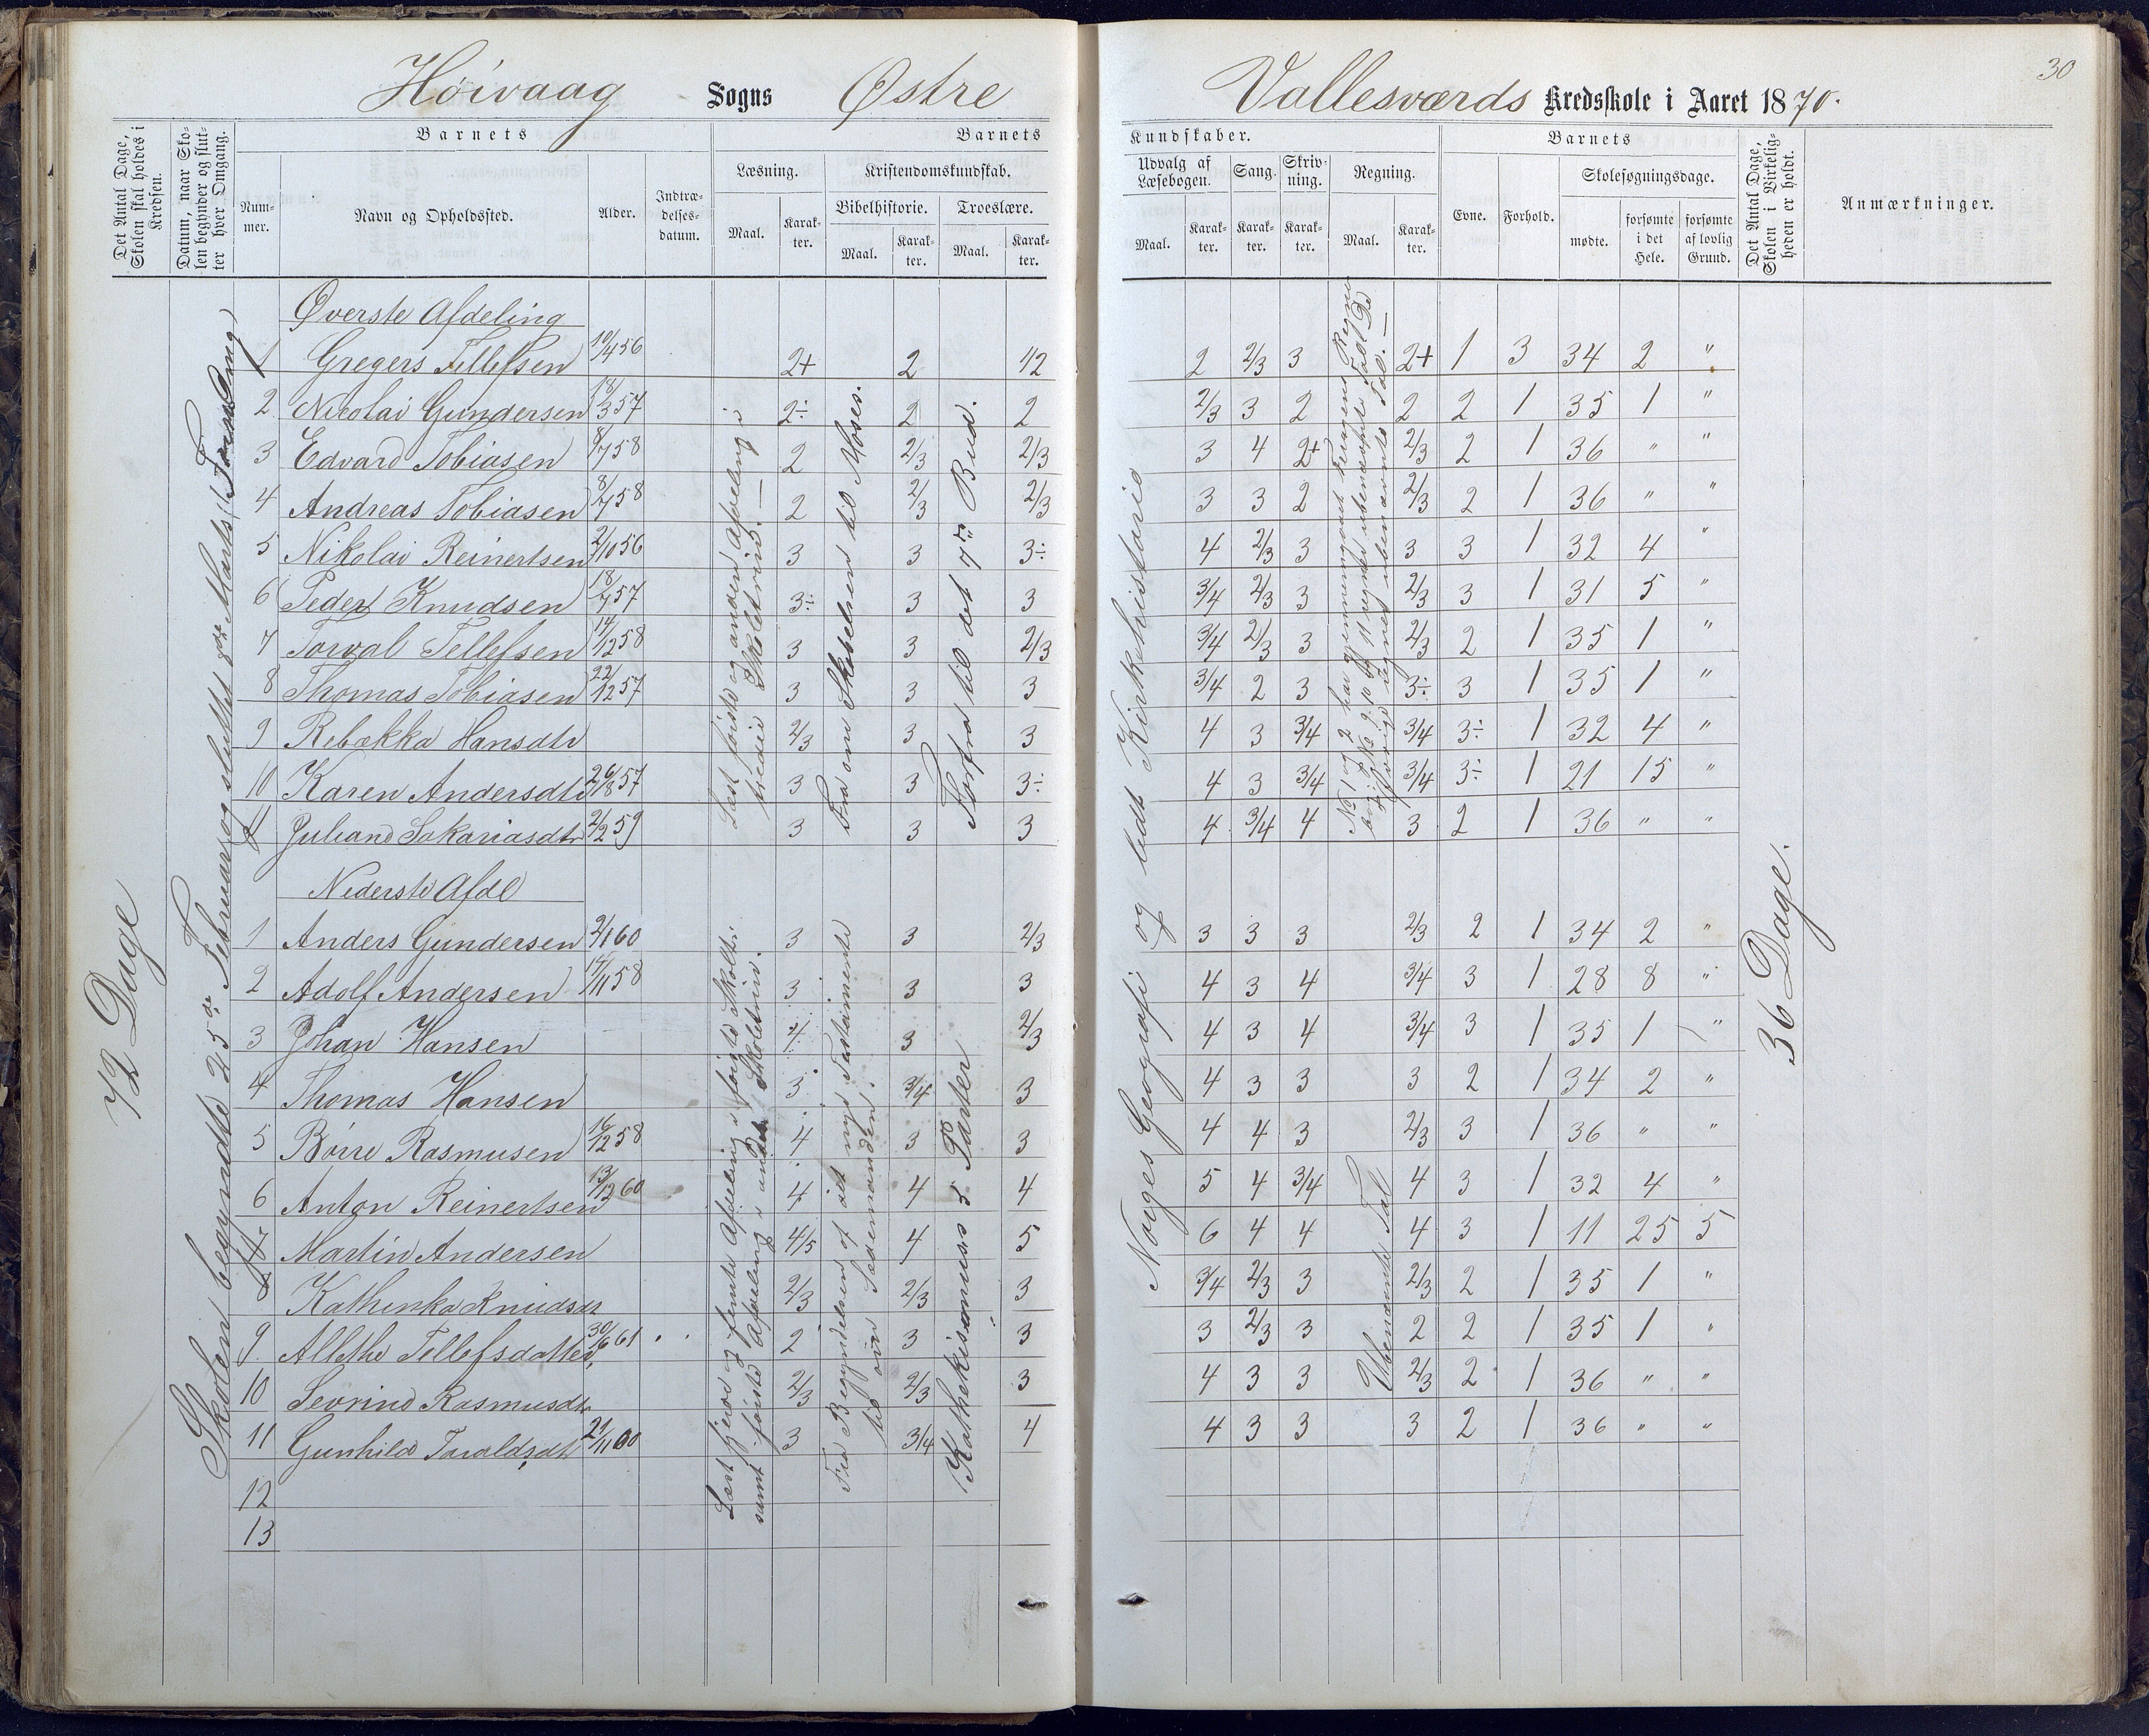 30
Høivaag Sogns Østre Vallesværds Kredsskole i Aaret 1870.
Det Antal Dage, Skolen skal holdes i Kredsen.
Datum, naar Skolen begynder og slutter hver Omgang.
Barnets
Nummer.
Navn og Opholdssted.
Alder.
Indtrædelsesdatum.
Barnets
Læsning.
Maal.
Karakter.
Kristendomskundskab.
Bibelhistorie.
Maal.
Karakter.
Troeslære.
Maal.
Karakter.
Kundskaber.
Udvalg af Læsebogen.
Maal.
Karakter.
Sang.
Karakter.
Skrivning.
Karakter.
Regning.
Maal.
Karakter.
Barnets
Evne.
Forhold.
Skolesøgningsdage.
mødte.
forsømte i det Hele.
forsømte af lovlig Grund.
Det Antal Dage, Skolen i Virkeligheden er holdt.
Anmærkninger.
72 Dage
Skolen begyndte 25de Februar og sluttet 8de Marts
Øverste Afdeling
1 Gregers Tellefsen 10/4 56 2+ 2 1/2 2 2/3 3 2+ 1 3 34 2 "
2 Nicolai Gundersen 18/3 57 2÷ 2 2 2/3 3 2 2 2 1 35 1 "
3 Edvard Tobiasen 8/7 58 2 2/3 2/3 3 4 2+ 2/3 2 1 36 " "
4 Andreas Tobiasen 8/7 58 2 2/3 2/3 3 3 2 2/3 2 1 36 " "
5 Nikolai Reinertsen 2/10 56 3 3 3÷ 4 2/3 3 3 3 1 32 4 "
6 Peder Knudsen 18/7 57 3÷ 3 3 3/4 2/3 3 2/3 3 1 31 5 "
7 Torval Tellefsen 14/12 58 3 3 2/3 3/4 2/3 3 2/3 2 1 35 1 "
8 Thomas Tobiasen 22/12 57 3 3 3 3/4 2 3 3÷ 3 1 35 1 "
9 Rebækka Hansdtr 2/3 3 3 4 3 3/4 3/4 3÷ 1 32 4 "
10 Karen Andersdtr 26/8 57 3 3 3÷ 4 3 3/4 3/4 3÷ 1 21 15 "
11 Juliane Sakariasdtr 2/2 59 3 3 3 4 3/4 4 3 2 1 36 " "
Læst første og anden Afdeling i tredie Skoletrin.
Fra om Skabelsen til Moses.
Forfra til det 7de Bud.
Norges Geografi og lidt Kirkehistorie
No 1 og 2 har gjennemgaaet
Nederste Afdl
1 Anders Gundersen 2/1 60 3 3 2/3 3 3 3 2/3 2 1 34 2 "
2 Adolf Andersen 14/11 58 3 3 3 4 3 4 3/4 3 1 28 8 "
3 Johan Hansen 4 3 2/3 4 3 4 3/4 3 1 35 1 "
4 Thomas Hansen 3 3/4 3 4 3 3 3 2 1 34 2 "
5 Børre Rasmusen 16/12 58 4 3 3 4 4 3 2/3 3 1 36 " "
6 Anton Reinertsen 13/12 60 4 4 4 5 4 3/4 4 3 1 32 4 "
Martin Andersen 4/5 4 5 6 4 4 4 3 1 11 25 5
Kathinka Knudsdt 2/3 2/3 3 3/4 2/3 3 2/3 2 1 35 1 "
9. Allethe Tellefsdatter 30/6 61 2 3 3 3 2/3 3 2 2 1 35 1 "
10 Sevrine Rasmusdtr 2/3 2/3 3 4 3 3 2/3 2 1 36 " "
11 Gunhild Taraldsdtr 21/11 60 3 3/4 4 4 3 3 3 2 1 36 " "
12
13
Læst fjerde og femte Afdeling i første Skoletr. samt første Afdeling i andet Skoletrin.
Fra Begyndelsen af det nye Testamente til om Sædemanden.
Kathekismus 5 Parter
Ubenævnte Tal
36 Dage.